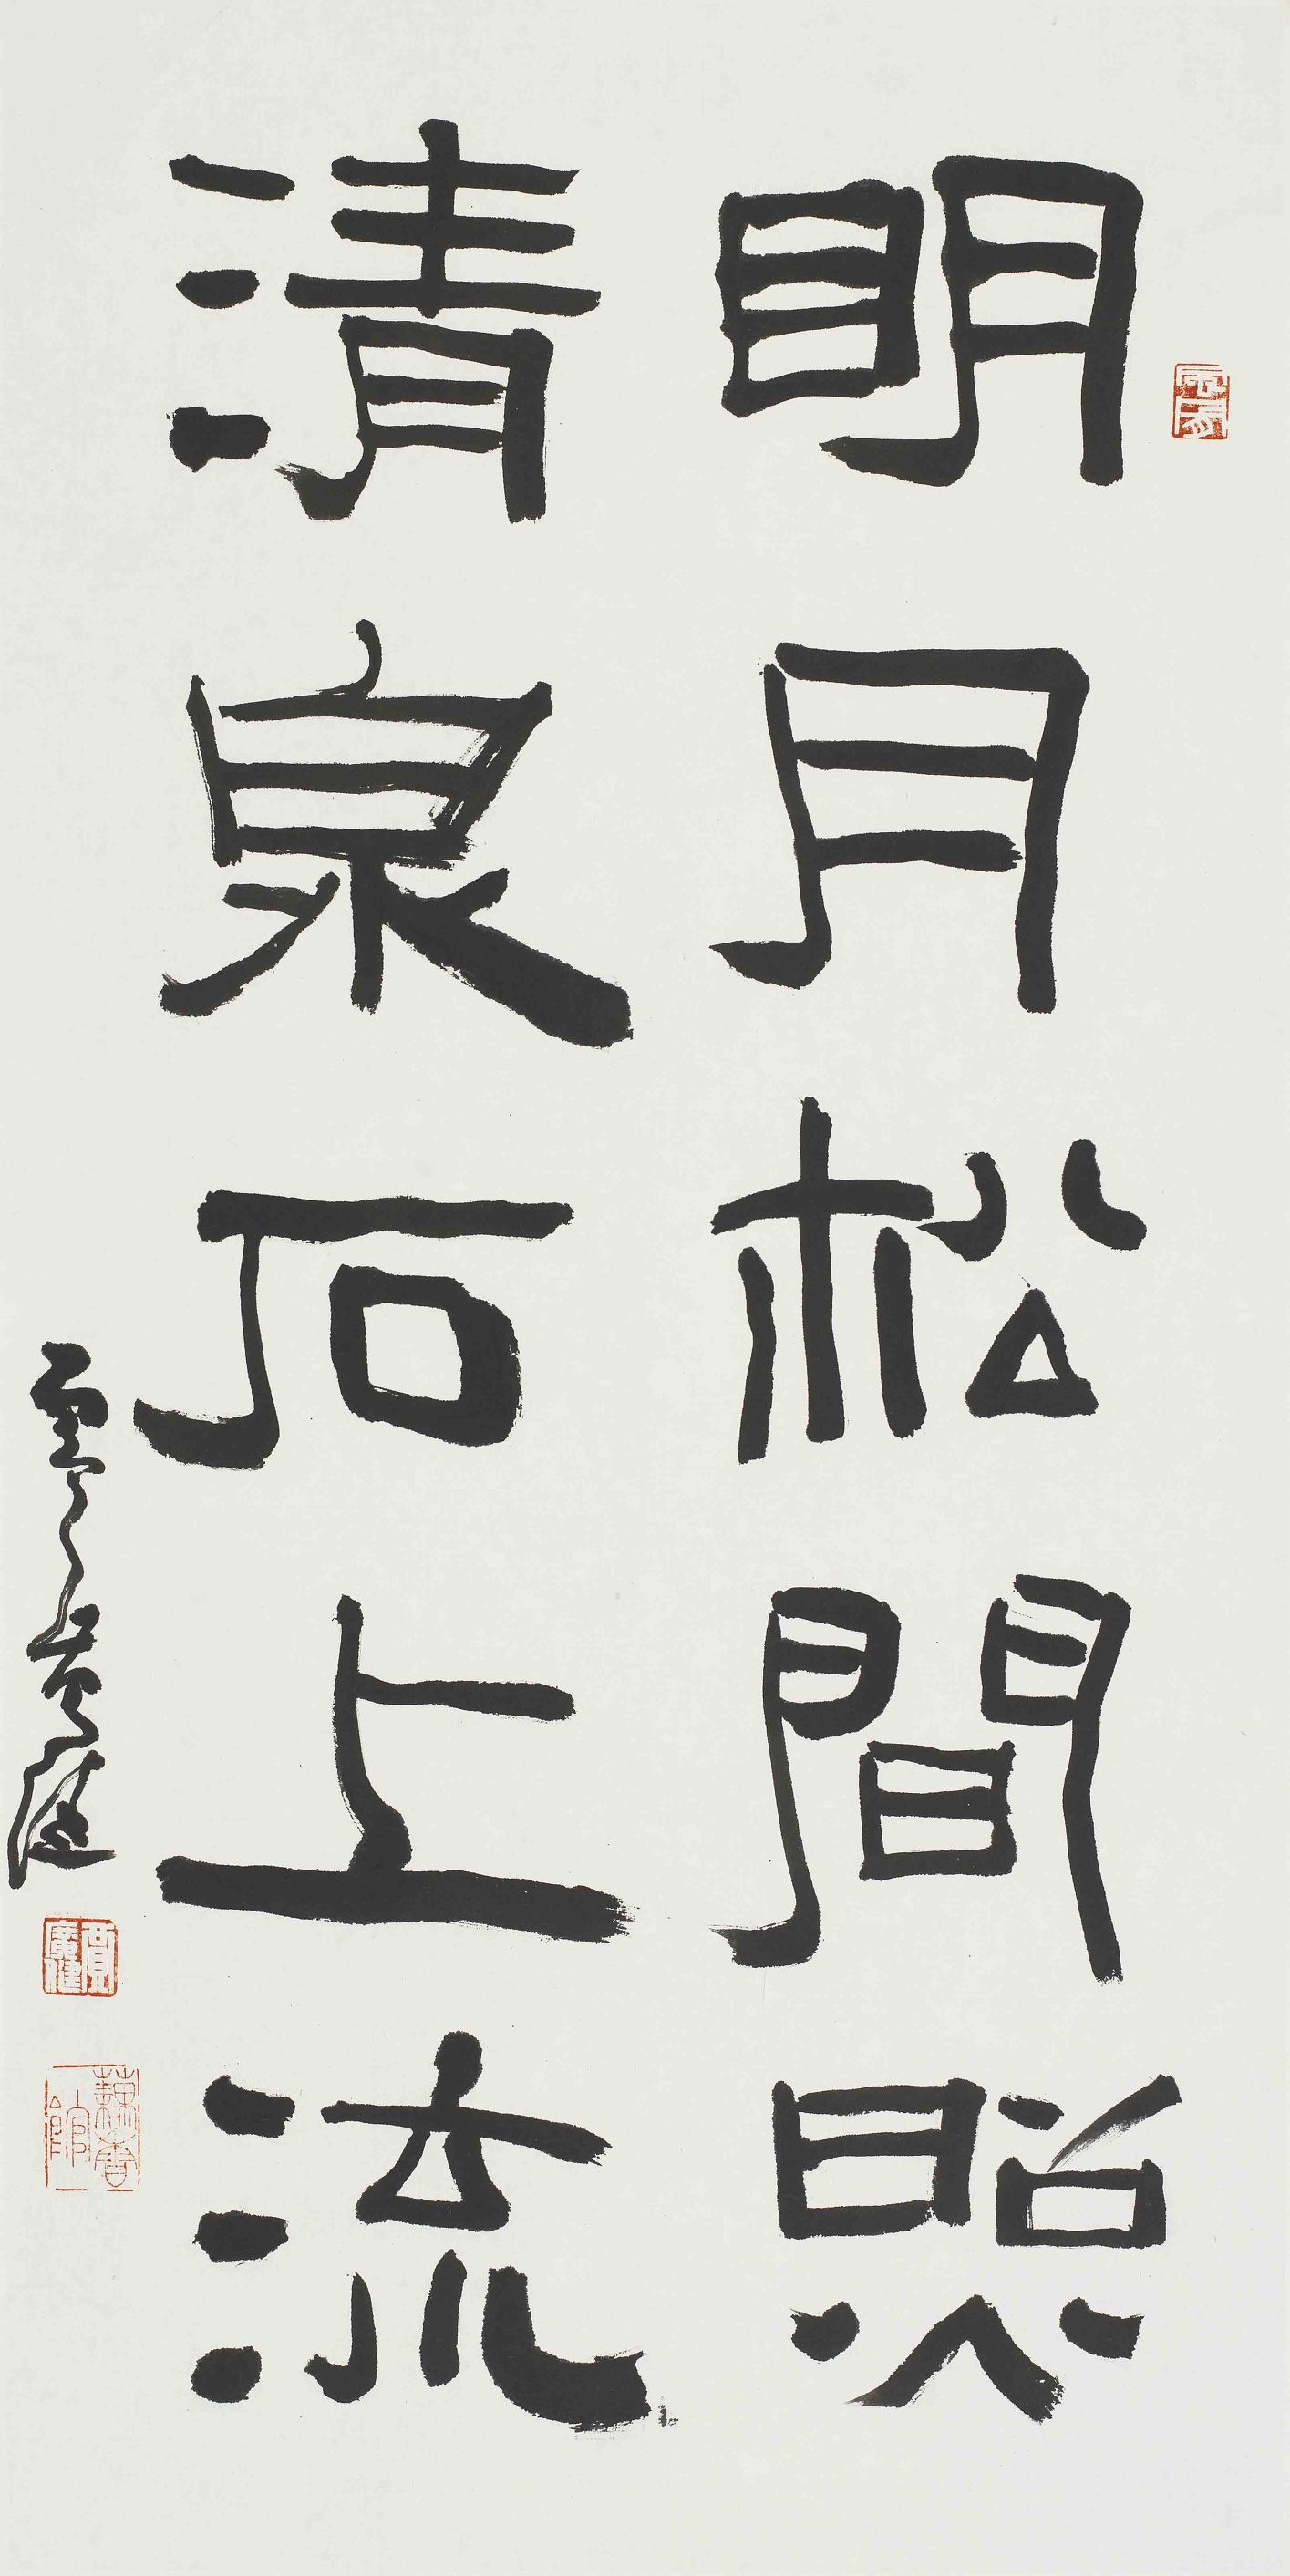 明月松間照
清泉石上流